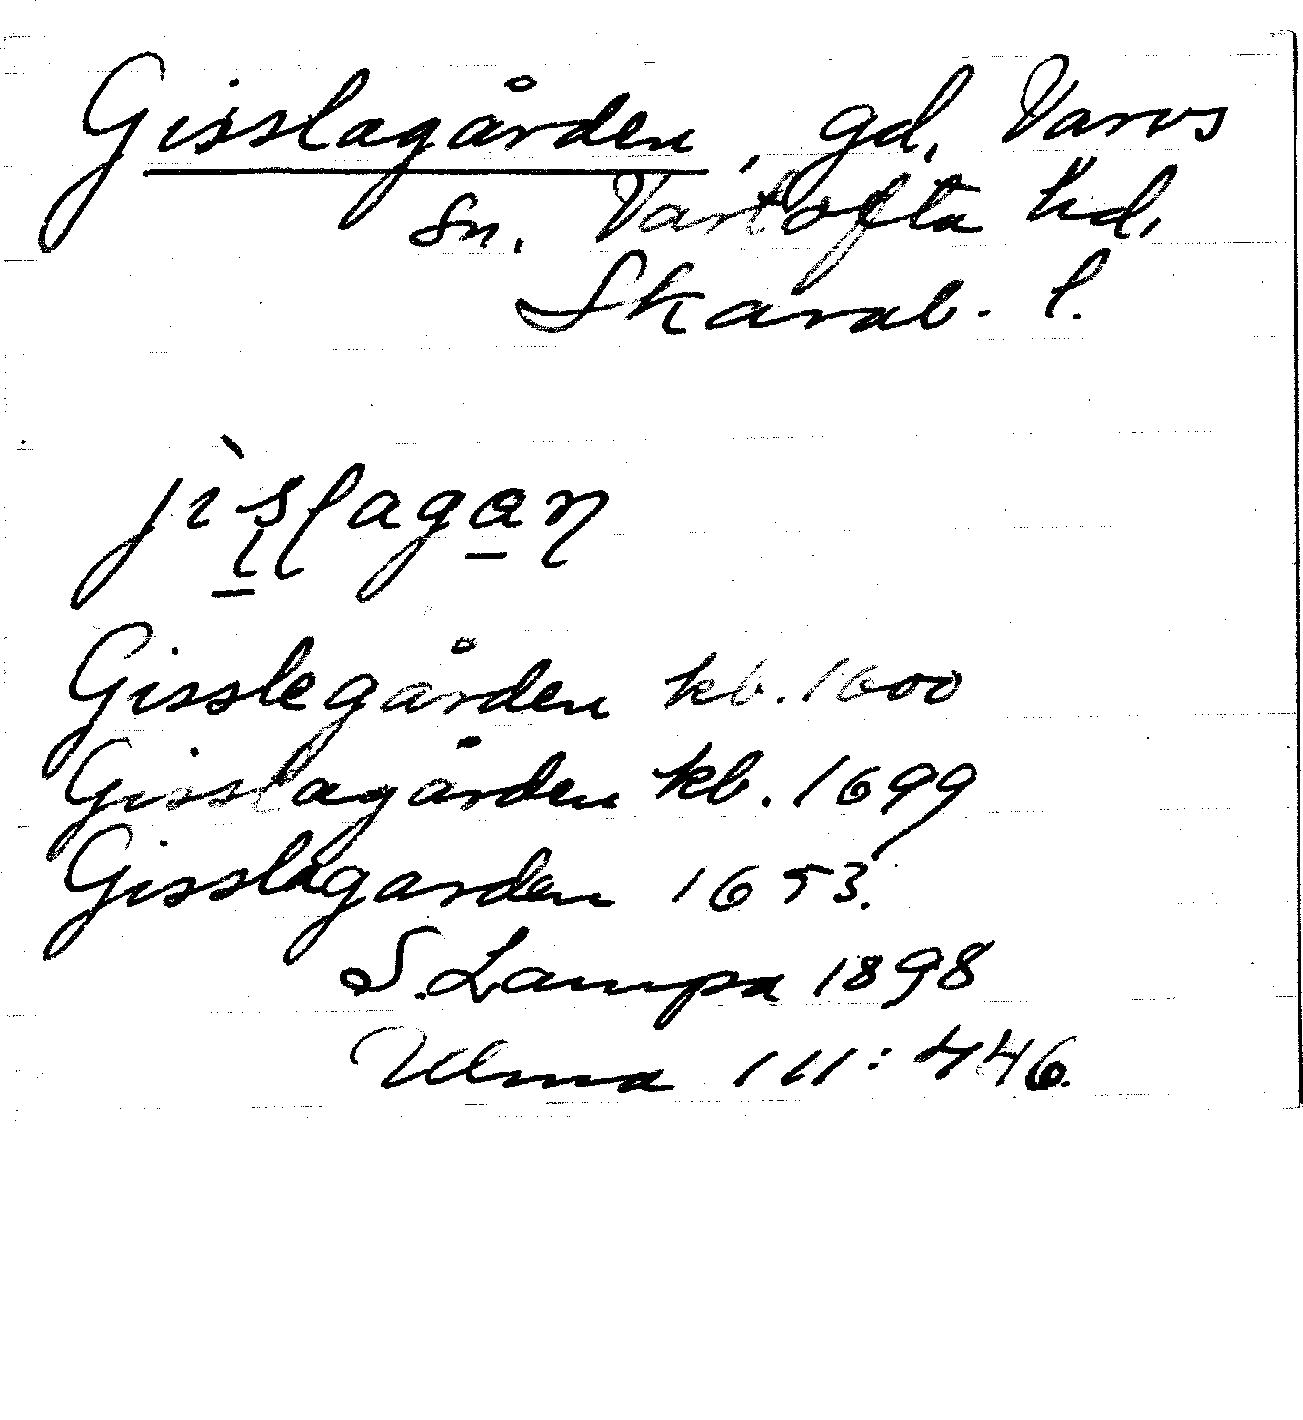 Gisslagården, gd, Varvs
sn. Vartofta hd,
Skarab. l.
Gisslegården kb. 1600
Gisslagården kb. 1699
Gisslagarden 1653.
S. Lampa 1898
Ulma 111:446.